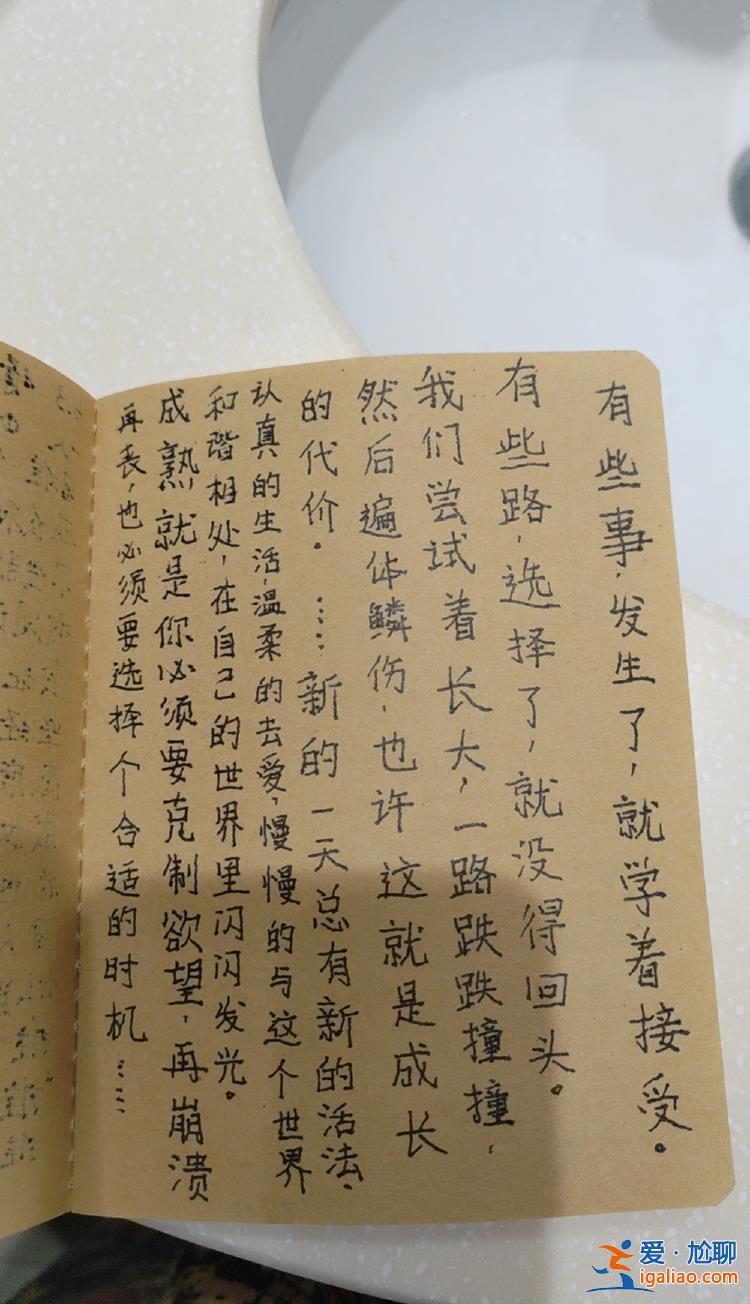 有些事，发生了，就学着接受。
有些路，选择了，就没得回头。
我们尝试着长大，一路跌跌撞撞，
然后遍体鳞伤，也许这就是成长
的代价。……新的一天总有新的活法、
认真的生活，温柔的去爱，慢慢的与这个世界
和谐相处，在自己的世界里闪闪发光。
成熟就是你必须要克制欲望，再崩溃
再丧，也必须要选择个合适的时机……
爱·尬聊
igaliao.com